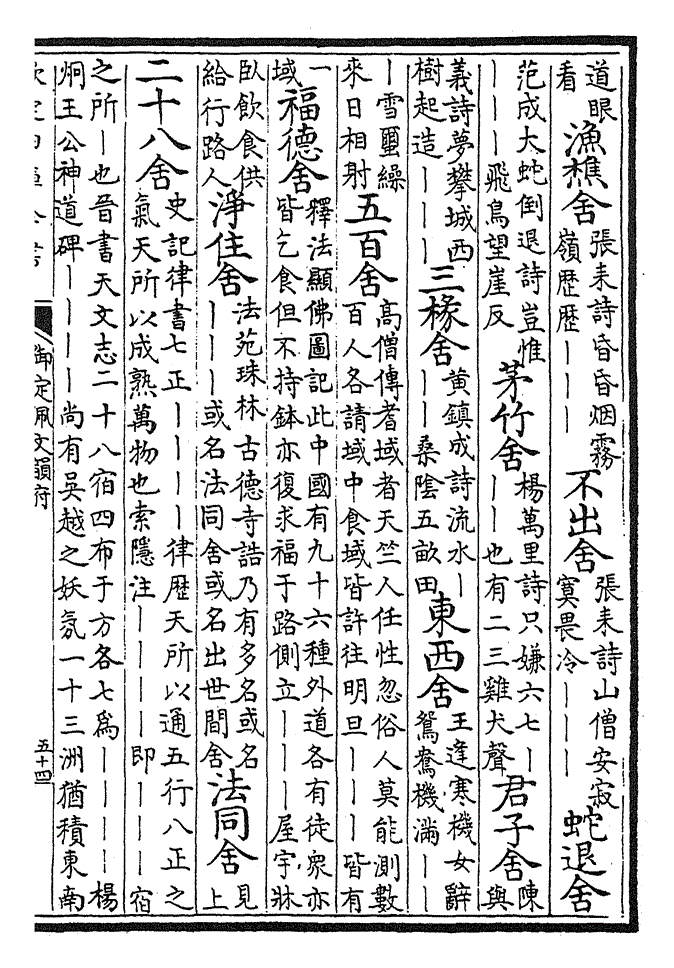 道眼
看
漁樵舍
張耒詩昏昏烟霧
嶺歷歷丨丨丨
不出舍
張耒詩山僧安寂
寞畏冷丨丨丨
蛇退舍
范成大蛇倒退詩豈惟
丨丨丨飛鳥望崖反
茅竹舍
楊萬里詩只嫌六七丨
丨丨也有二三雞犬聲
君子舍
陳
與
義詩夢攀城西
樹起造丨丨丨
三椽舍
黄鎮成詩流水丨
丨丨桑陰五畝田
東西舍
王逢寒機女辭
鴛鴦機滿丨丨
丨雪璽繰
來日相射
五百舍
高僧傳耆域者天竺人任性忽俗人莫能測數
百人各請域中食域皆許往明旦丨丨丨皆有
一
域
福德舍
釋法顯佛圖記此中國有九十六種外道各有徒衆亦
皆乞食但不持鉢亦復求福于路側立丨丨丨屋宇牀
臥飲食供
給行路人
淨住舍
法苑珠林古德寺誥乃有多名或名
丨丨丨或名法同舍或名出世間舍
法同舍
見
上
二十八舍
史記律書七正丨丨丨丨律歷天所以通五行八正之
氣天所以成熟萬物也索隱注丨丨丨丨即丨丨丨宿
之所丨也晉書天文志二十八宿四布于方各七爲丨丨丨丨楊
炯王公神道碑丨丨丨丨尚有吳越之妖氛一十三洲猶積東南
欽定四庫全書
御定佩文韻府
五十四